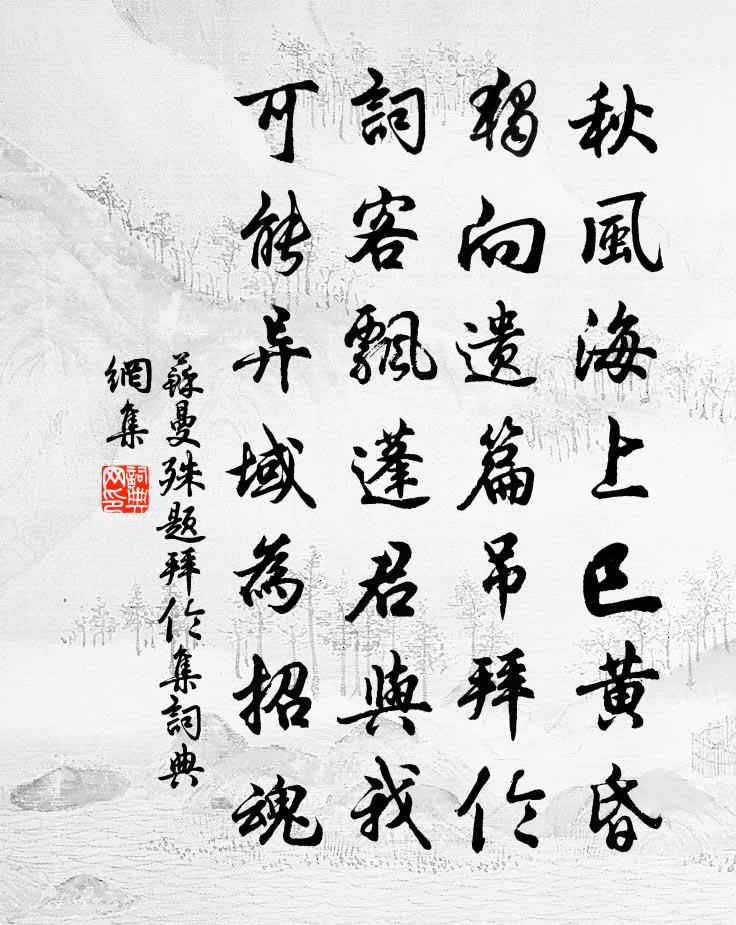 秋風海上已黃昏
獨向遺篇吊拜伦
詞客飄蓬君與我
可能异域為招魂
蘇曼殊題拜伦集詞典
網集
詞典網印